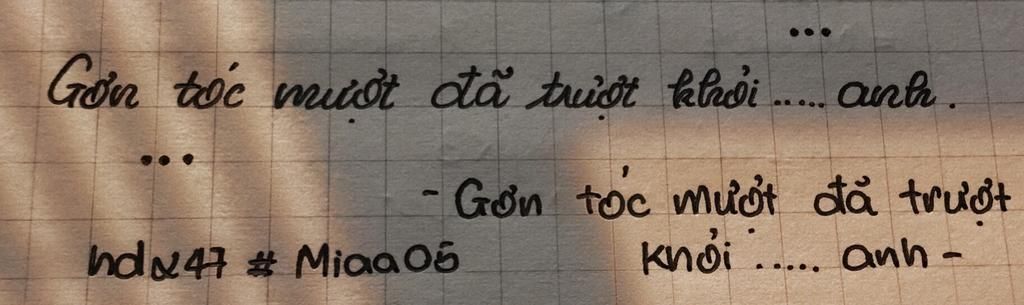 ...
Gợn tóc mượt đã trượt khỏi ..... anh.
...
- Gợn tóc mượt đã trượt
khỏi ..... anh -
hdz47 # Miaa05